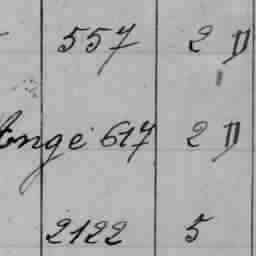 557 2 D
Ange 617 2 D
2122 5